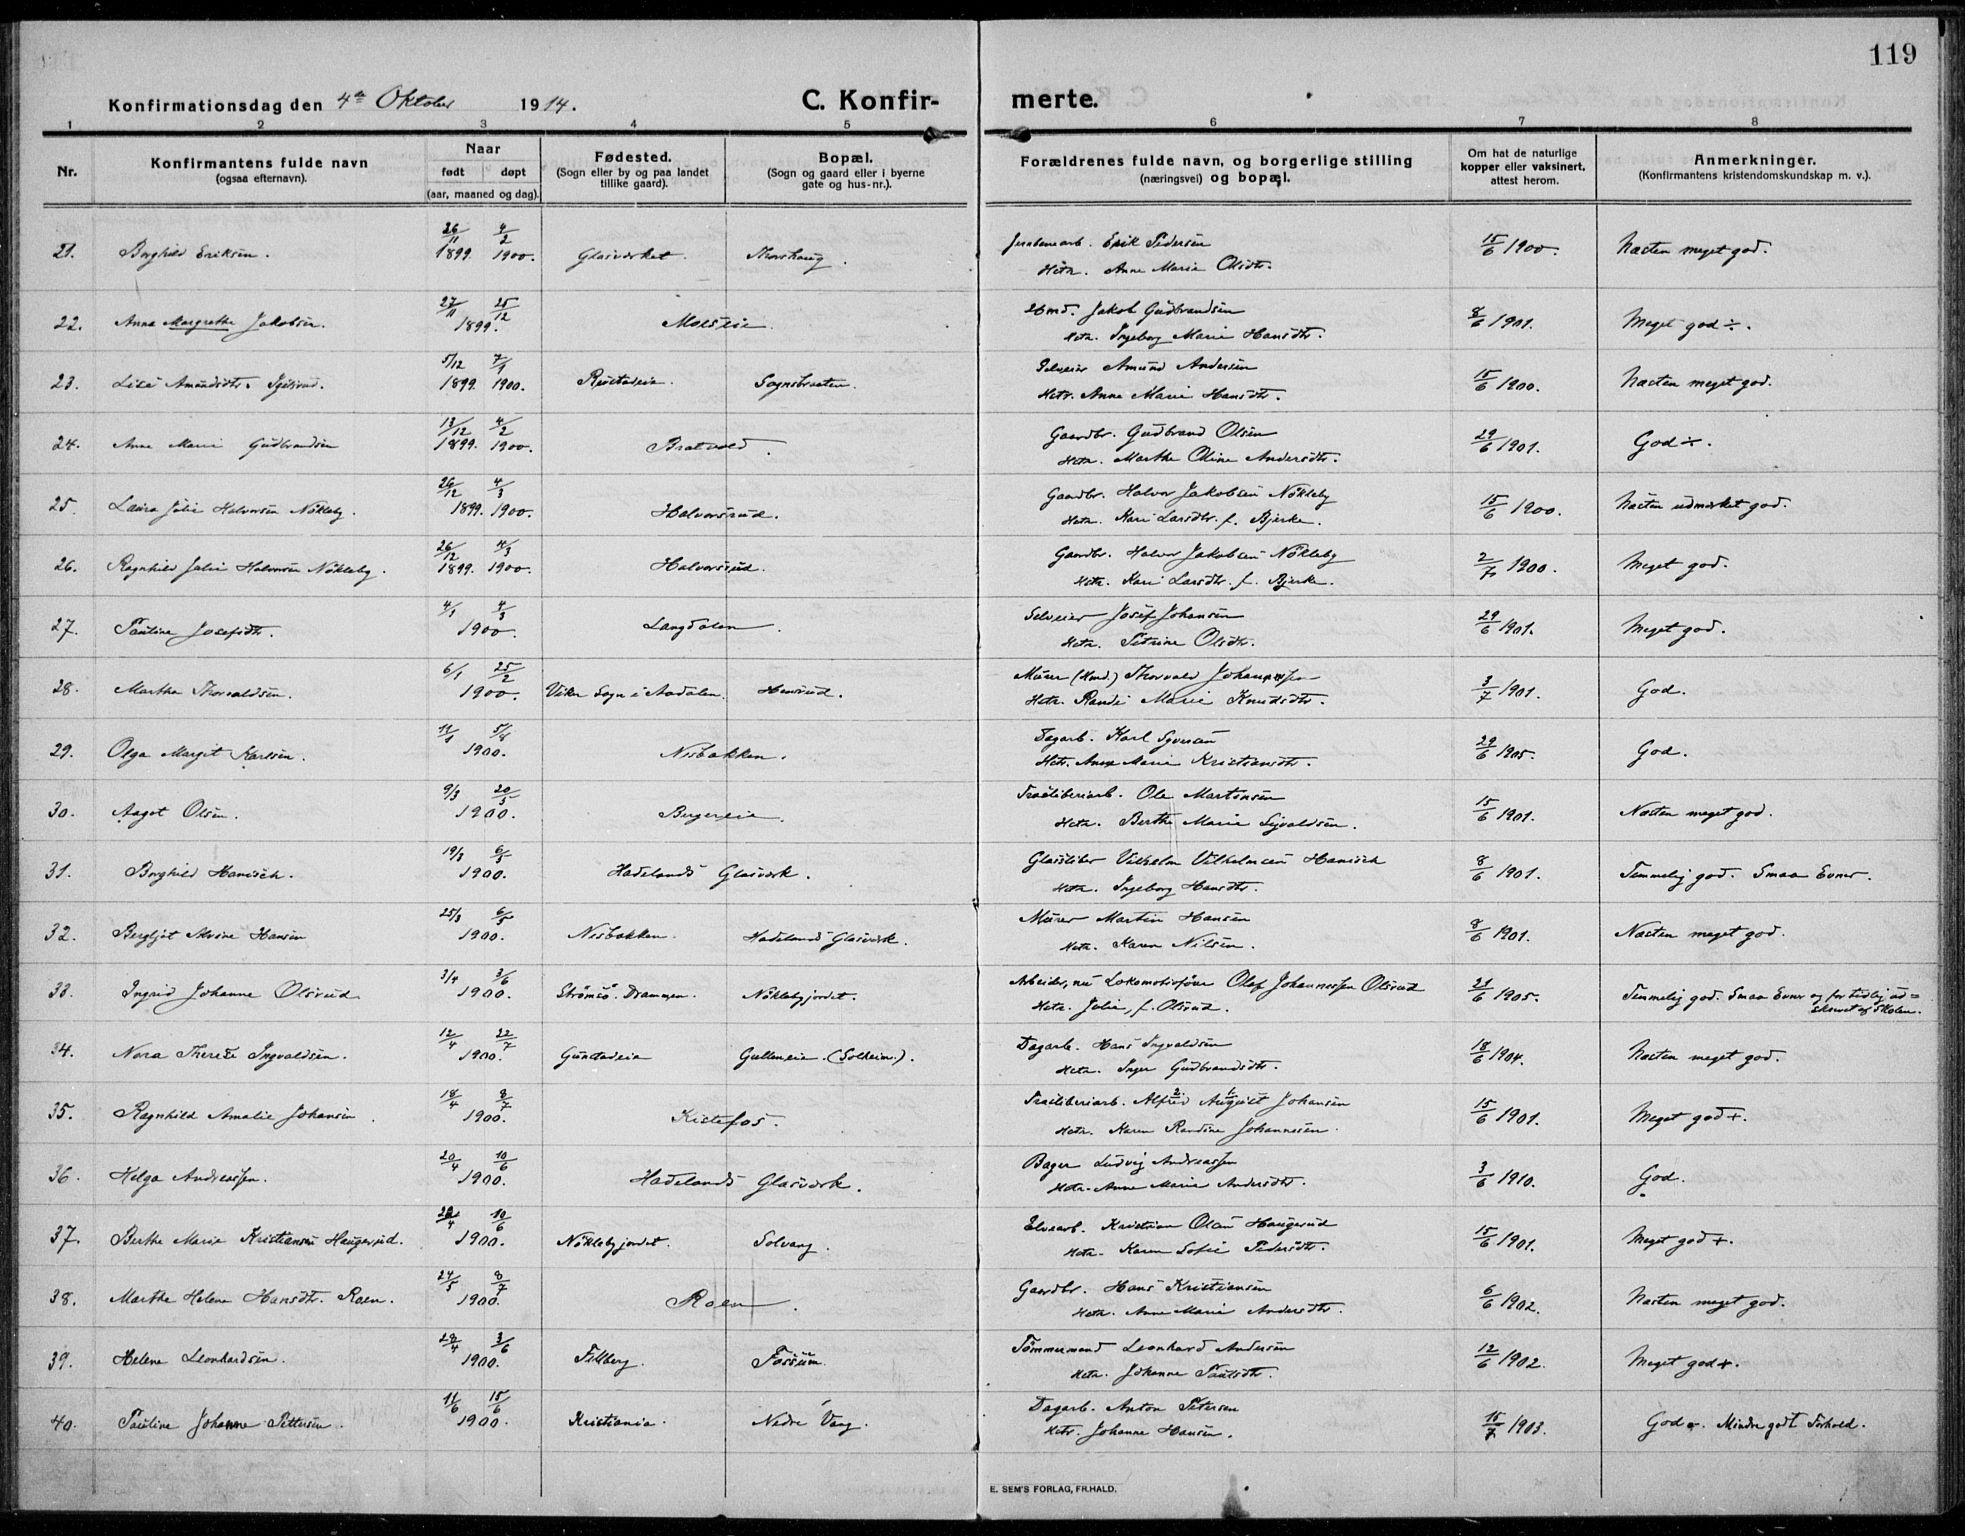 119
Konfirmationsdag den 4de Oktober 1914.
C. Konfir- merte.
1 2 3 4 5 6 7 8
Nr.
Konfirmantens fulde navn
(ogsaa efternavn).
Naar
født døpt
(aar, maaned og dag).
Fødested.
(Sogn eller by og paa landet
tillike gaard).
Bopæl.
(Sogn og gaard eller i byerne
gate og hus-nr.).
Forældrenes fulde navn, og borgerlige stilling
(næringsvei) og bopæl.
Om hat de naturlige
kopper eller vaksinert,
attest herom.
Anmerkninger.
(Konfirmantens kristendomskundskap m. v.).
21. Borghild Eriksen. 26/11 1899. 4/2 1900. Glasværket. Thorshaug. Jernbanearb. Erik Pedersen 15/6 1900. Næsten meget god.
Hstr. Anne Marie Olsdtr.
22. Anna Margrethe Jakobsen. 27/11 25/12 1899. Moeseie. Hmd. Jakob Gudbrandsen 8/6 1901. Meget god ÷.
Hstr. Ingeborg Marie Hansdtr.
23. Lise Amundsdtr. 5/12 1899. 7/1 1900. Rustadeie. Sognsbraaten. Selveier Amund Andersen 15/6 1900. Næsten meget god.
Hstr. Anne Marie Hansdtr.
24. Anne Marie Gudbrandsen 13/12 1899. 4/2 1900. Bratvold. Gaardbr. Gudbrand Olsen 29/6 1901. God ÷.
Hstr. Marthe Oline Andersdtr.
25. Laura Julie Halvorsen Nökleby. 26/12 1899. 4/3 1900. Halvorsrud. Gaardbr. Halvor Jakobsen Nökleby 15/6 1900. Næsten udmerket god.
Hstr. Kari Larsdtr. f. Bjerke.
26. Ragnhild Julie Halvorsen Nökleby. 26/12 1899. 4/3 1900. Halvorsrud. Gaardbr. Halvor Jakobsen Nökleby 2/7 1900. Meget god.
Hstr. Kari Larsdtr. f. Bjerke.
27. Pauline Josefsdtr. 4/1 4/3 1900. Langdalen. Selveier Josef Johansen 29/6 1901. Meget god.
Hstr. Petrine Olsdtr.
28. Marthe Thorvaldsen. 6/1 25/2 1900. Viker Sogn i Aadalen. Hensrud. Murer (Hmd.) Thorvald Johannessen 3/7 1901. God.
Hstr. Randi Marie Knudsdtr.
29. Olga Margit Karlsen. 11/1 5/8 1900. Nesbakken. Dagarb. Karl Syversen 29/6 1905. God.
Hstr. Anne Marie Kristiansdtr.
30. Aagot Olsen. 9/3 20/5 1900. Bergereie. Træsliberiarb. Ole Martinsen 15/6 1901. Næsten meget god.
Hstr. Berthe Marie Sigvaldsen.
31. Borghild Hanisch. 19/3 6/5 1900. Hadelands Glasværk. Glassliber Vilhelm Vilhelmsen Hanisch 8/6 1901. Temmelig god. Smaa Evner.
Hstr. Ingeborg Hansdtr.
32. Bergljot Alvine Hansen 25/3 6/5 1900. Nesbakken. Hadelands Glasværk. Murer Martin Hansen 8/6 1901. Næsten meget god.
Hstr. Karen Nilsen.
33. Ingrid Johanne Olsrud 3/4 3/6 1900. Strömsö. Drammen. Nöklebyjordet. Arbeider, nu Lokomotivförer Olaf Johannessen Olsrud 21/6 1905. Temmelig god. Smaa Evner og for tidlig ud=
Hstr. Julie, f. Olsrud. skrevet af Skolen.
34. Nora Therese Ingvaldsen. 12/4 22/7 1900. Gunstadeie Gulleneie. (Solheim.). Dagarb. Hans Ingvaldsen 18/6 1904. Næsten meget god.
Hstr. Inger Gudbrandsdtr.
35. Ragnhild Amalie Johansen. 18/4 8/7 1900. Kistefos. Træsliberiarb. Alfred 2 August 1 Johansen 15/6 1901. Meget god +.
Hstr. Karen Randine Johannesen.
36. Helga Andreassen. 20/4 10/6 1900. Hadelands Glasværk. Bager Ludvig Andreassen 3/6 1910. God.
Hstr. Anne Marie Andersdtr.
37. Berthe Marie Kristiansen Haugerud. 4 10/6 1900. Nöklebyjordet. Solvang. Elvearb. Kristian Olsen Haugerud 15/6 1901. Meget god +.
Hstr. Karen Sofie Pedersdtr.
38. Marthe Helene Hansdtr. Roen. 24/5 8/7 1900. Roen. Gaardbr. Hans Kristiansen 6/6 1902. Næsten meget god.
Hstr. Anne Marie Andersdtr.
39. Helene Leonhardsen. 28/4 3/6 1900. Fellberg. Fossum. Tömmermand Leonhard Andersen 12/6 1902. Meget god +.
Hstr. Johanne Paulsdtr.
40. Pauline Johanne Pettersen. 11/6 15/6 1900. Kristiania. Nedre Vang. Dagarb. Anton Petersen 16/7 1903. God ÷. Mindre godt Forhold.
Hstr. Johanne Hansen.
E. SEM'S FORLAG, FR.HALD.